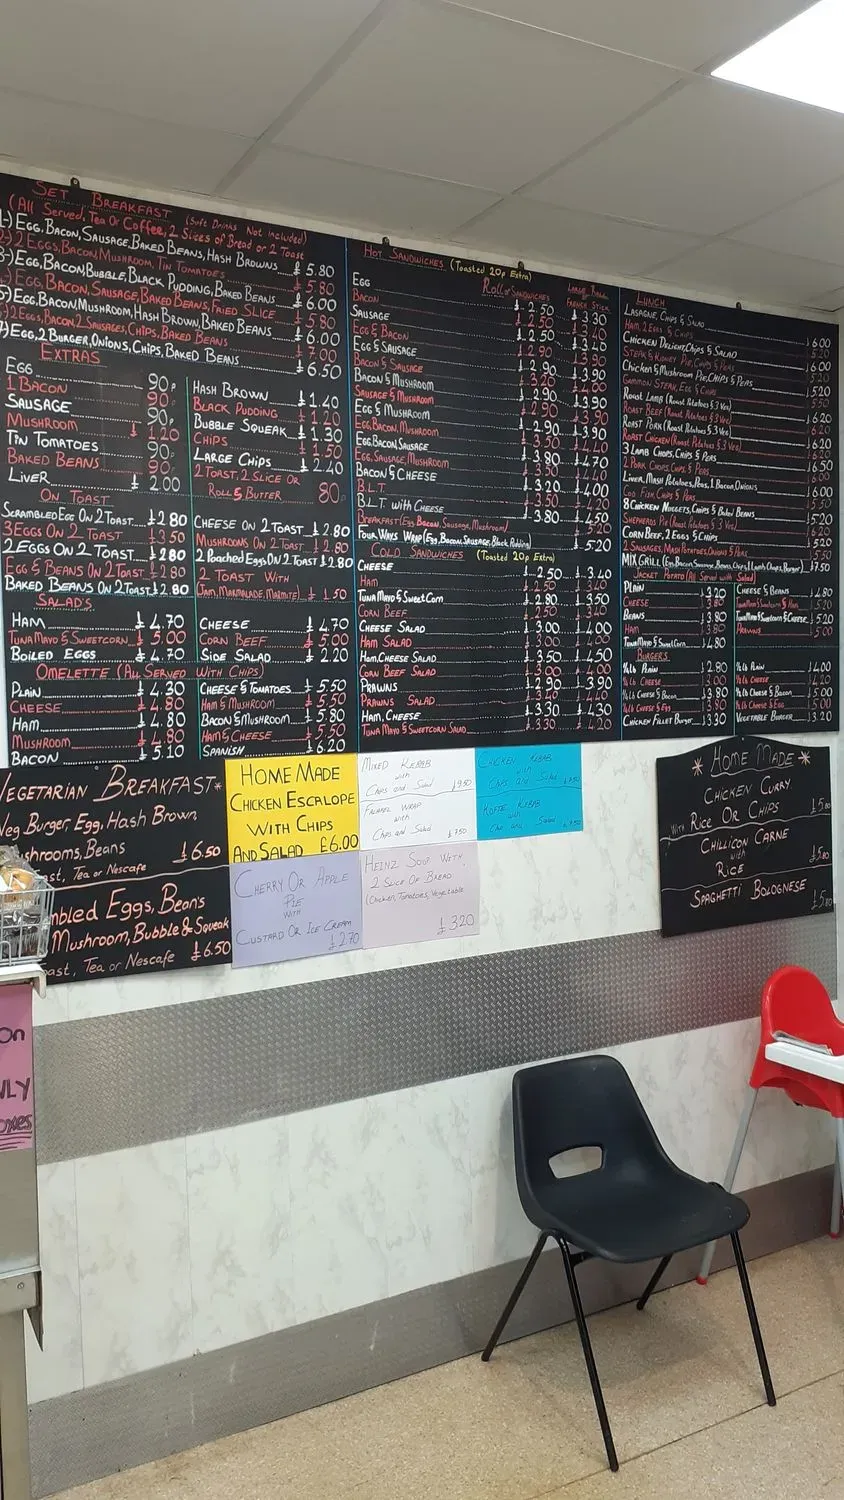 SET BREAKFAST
(ALL SERVED, TEA OR COFFEE, 2 SLICES OF BREAD OR 2 TOAST (Soft Drinks Not included)
1-) EGG, BACON, SAUSAGE, BAKED BEANS, HASH BROWNS £5.80
2-) 2 EGGS, BACON, MUSHROOM, TIN TOMATOES £5.80
3-) EGG, BACON, BUBBLE, BLACK PUDDING, BAKED BEANS £6.00
EGG, BACON, SAUSAGE, BAKED BEANS, FRIED SLICE £5.80
5) EGG, BACON, MUSHROOM, HASH BROWN, BAKED BEANS £6.00
2 EGGS, BACON, 2 SAUSAGES, CHIPS, BAKED BEANS £7.00
7) EGG, 2 BURGER, ONIONS, CHIPS, BAKED BEANS £6.50
EXTRAS
EGG 90P
1 BACON 90P
SAUSAGE 90P
MUSHROOM £1.20
TIN TOMATOES 90P
BAKED BEANS 90P
LIVER £2.00
HASH BROWN £1.40
BLACK PUDDING £1.20
BUBBLE SQUEAK £1.30
CHIPS £1.50
LARGE CHIPS £2.40
2 TOAST, 2 SLICE OR
ROLL & BUTTER 80P
ON TOAST
SCRAMBLED EGG ON 2 TOAST £2.80
3 EGGS ON 2 TOAST £3.50
2 EGGS ON 2 TOAST £2.80
EGG & BEANS ON 2 TOAST £2.80
BAKED BEANS ON 2 TOAST £2.80
CHEESE ON 2 TOAST £2.80
MUSHROOMS ON 2 TOAST £2.80
2 POACHED EGGS ON 2 TOAST £2.80
2 TOAST WITH
(JAM, MARMALADE, MARMITE) £1.50
SALAD'S
HAM £4.70
TUNA MAYO & SWEETCORN £5.00
BOILED EGGS £4.70
CHEESE £4.70
CORN BEEF £5.00
SIDE SALAD £2.20
OMELETTE (ALL SERVED WITH CHIPS)
PLAIN £4.30
CHEESE £4.80
HAM £4.80
MUSHROOM £4.80
BACON £5.10
CHEESE & TOMATOES £5.50
HAM & MUSHROOM £5.50
BACON & MUSHROOM £5.80
HAM & CHEESE £5.50
SPANISH £6.20
HOT SANDWICHES (Toasted 20p Extra)
ROLL OR SANDWICHES LARGE ROLL FRENCH STICK
EGG £2.50 £3.30
BACON £2.50 £3.40
SAUSAGE £2.50 £3.40
EGG & BACON £2.90
EGG & SAUSAGE £2.90
BACON & SAUSAGE
BACON & MUSHROOM
SAUSAGE & MUSHROOM
EGG & MUSHROOM £2.90 £3.90
EGG, BACON, MUSHROOM
EGG, BACON, SAUSAGE
EGG, SAUSAGE, MUSHROOM
BACON & CHEESE £3.20 £4.00
B.L.T.
B.L.T. WITH CHEESE £3.80 £4.50
BREAKFAST (EGG, BACON, SAUSAGE, MUSHROOM)
FOUR WAYS WRAP (EGG, BACON, SAUSAGE, BLACK PUDDING) £5.20
COLD SANDWICHES (TOASTED 20P EXTRA)
CHEESE £2.50 £3.40
HAM £2.50
TUNA MAYO & SWEETCORN £2.80 £3.50
CORN BEEF
CHEESE SALAD £3.00 £4.00
HAM SALAD £3.00
HAM, CHEESE SALAD £3.50 £4.50
CORN BEEF SALAD
PRAWNS £3.30 £3.90
PRAWNS SALAD
HAM, CHEESE £3.30 £4.30
TUNA MAYO & SWEETCORN SALAD £3.30 £4.20
LUNCH
LASAGNE, CHIPS & SALAD £6.00
HAM, 2 EGGS & CHIPS £5.20
CHICKEN DELIGHT, CHIPS & SALAD £6.00
STEAK & KIDNEY PIE, CHIPS & PEAS
CHICKEN & MUSHROOM PIE, CHIPS & PEAS
GAMMON STEAK, EGG & CHIPS
ROAST LAMB (ROAST POTATOES & 3 VEG)
ROAST BEEF (ROAST POTATOES & 3 VEG)
ROAST PORK (ROAST POTATOES & 3 VEG)
ROAST CHICKEN (ROAST POTATOES & 3 VEG)
3 LAMB CHOPS, CHIPS & PEAS
2 PORK CHOPS, CHIPS & PEAS
LIVER, MASH POTATOES, PEAS, 1 BACON, ONIONS £6.00
COD FISH, CHIPS & PEAS
8 CHICKEN NUGGETS, CHIPS & BAKED BEANS
SHEPHERDS PIE (ROAST POTATOES & 3 VEG)
CORN BEEF, 2 EGGS & CHIPS
2 SAUSAGES, MASH POTATOES, ONIONS & PEAS
MIX GRILL (EGG, BACON, SAUSAGE, BEANS, CHIPS, 1 LAMB CHOPS, BURGER) £7.50
JACKET POTATO (ALL SERVED WITH SALAD)
PLAIN £3.20
CHEESE £3.80
BEANS £3.80
HAM £3.80
TUNA MAYO & SWEETCORN £4.80
CHEESE & BEANS £4.80
TUNA MAYO & SWEETCORN & HAM £5.20
TUNA MAYO & SWEETCORN & CHEESE £5.20
PRAWNS £5.00
BURGERS
¼ LB PLAIN £2.80
¼ LB CHEESE £3.00
¼ LB CHEESE & BACON £3.80
¼ LB CHEESE & EGG £3.80
CHICKEN FILLET BURGER £3.30
½ LB PLAIN £4.00
½ LB CHEESE £4.20
½ LB CHEESE & BACON £5.00
½ LB CHEESE & EGG £5.00
VEGETABLE BURGER £3.20
VEGETARIAN BREAKFAST*
Veg Burger, Egg, Hash Brown,
shrooms, Beans
ast, Tea or Nescafe £6.50
mbled Eggs, Beans
Mushroom, Bubble & Squeak
ast, Tea or Nescafe £6.50
HOME MADE
CHICKEN ESCALOPE
WITH CHIPS
AND SALAD £6.00
MIXED KEBAB
with
Chips and Salad £9.50
FALAFEL WRAP
with
Chips and Salad £7.50
CHICKEN KEBAB
with
Chips and Salad
KOFTE KEBAB
with
Chips and Salad
CHERRY OR APPLE
PIE
WITH
CUSTARD OR ICE CREAM
£2.70
HEINZ SOUP WITH
2 SLICE OF BREAD
(Chicken, Tomatoes, Vegetable
£3.20
* HOME MADE *
CHICKEN CURRY
WITH RICE OR CHIPS £5.80
CHILLICON CARNE
with
RICE £5.80
SPAGHETTI BOLOGNESE £5.80
on
NLY
oxes